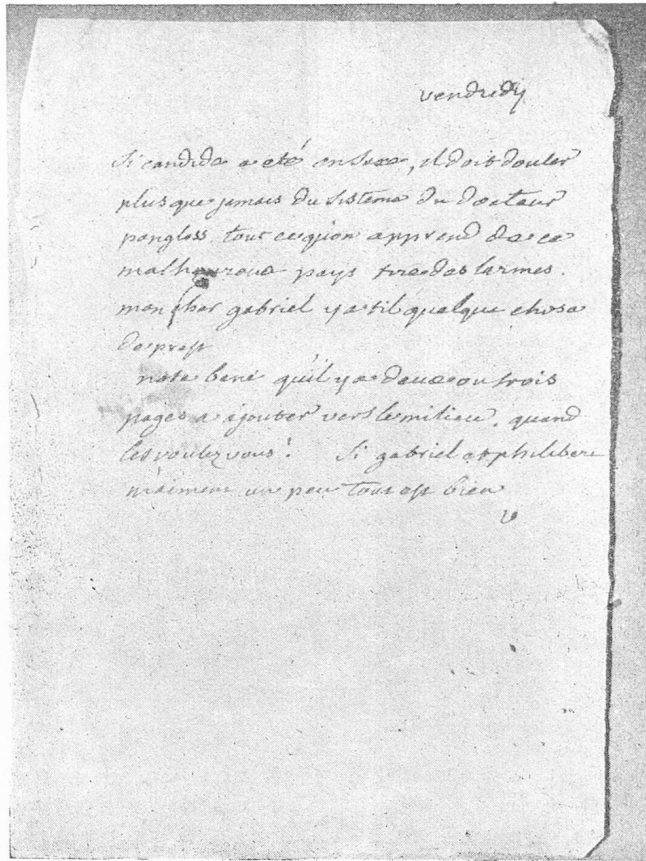 vendredy
si candide a eté en saxe, il doit douter
plus que jamais du sisteme du docteur
pangloss. tout ce qu'on apprend de ce
malheureux pays tire des larmes.
mon cher gabriel y a til quelque chose
de prest
nota bene qu'il y a deux ou trois
pages a ajouter vers le milieu. quand
les voulez vous? si gabriel et philibert
m'aiment un peu tout est bien
V